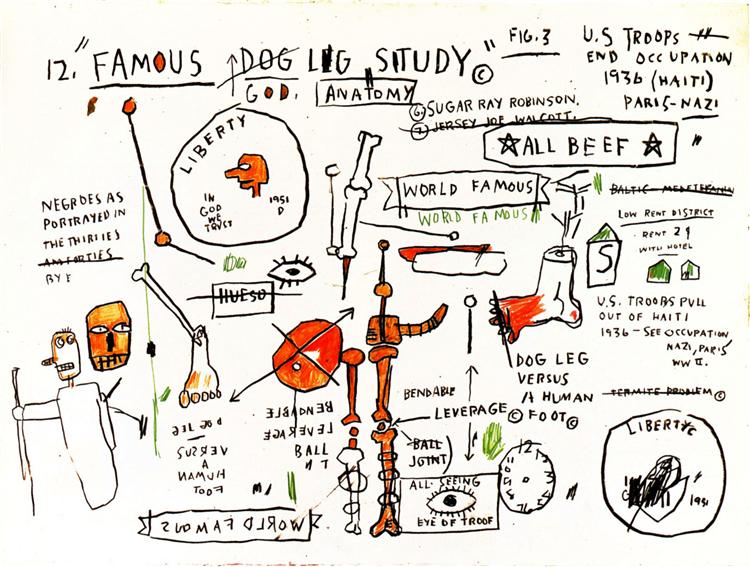 12. "FAMOUS DOG LEG STUDY" ©
FIG. 3
GOD.
ANATOMY
U.S TROOPS
END OCCUPATION
1936 (HAITI)
PARIS-NAZI
6) SUGAR RAY ROBINSON.
7) JERSEY JOE WALCOTT.
☆ALL BEEF☆
"
LIBERTY
IN
GOD
WE
TRUST
1951
D
WORLD FAMOUS
WORLD FAMOUS
LOW RENT DISTRICT
RENT 2
WITH HOTEL
S
NEGROES AS
PORTRAYED IN
THE THIRTIES
HUESO
U.S. TROOPS PULL
OUT OF HAITI
1936 - SEE OCCUPATION
NAZI, PARIS
WW II.
TERMITE PROBLEM ©
DOG LEG
VERSUS
A HUMAN
FOOT ©
BENDABLE
LEVERAGE ©
BALL
JOINT
BENDABLE
LEVERAGE
BALL
DOG LEG
VERSUS
A
HUMAN
FOOT
ALL-SEEING
EYE OF TROOF
WORLD FAMOUS
12
LIBERTY
1951